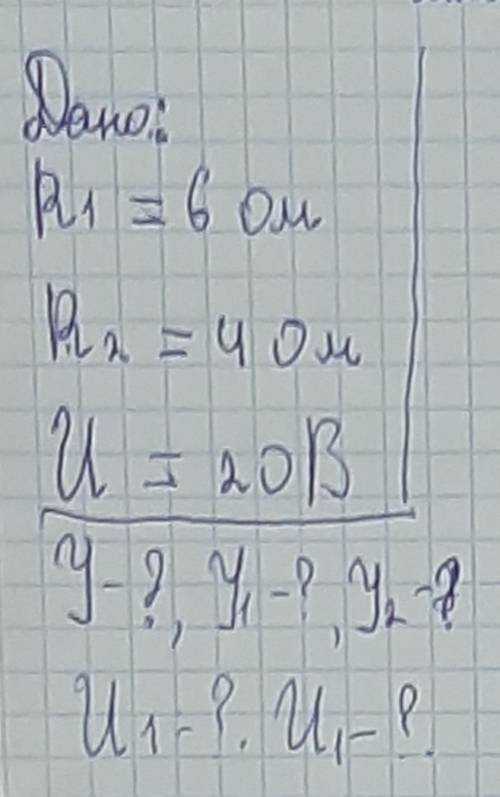 Дано:
R1 = 6 Ом
R2 = 4 Ом
U = 20В
У-?, У1-?, У2-?
U1-?. U1-?